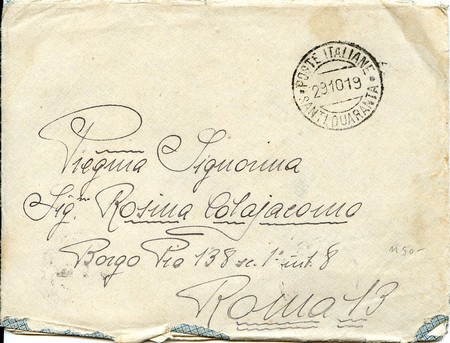 POSTE ITALIANE
291019
SANTI QUARANTA
Pregma Signorina
Sig.na Rosina Colajacomo
Borgo Pio 138 sc. 1ª int. 8
Roma 13